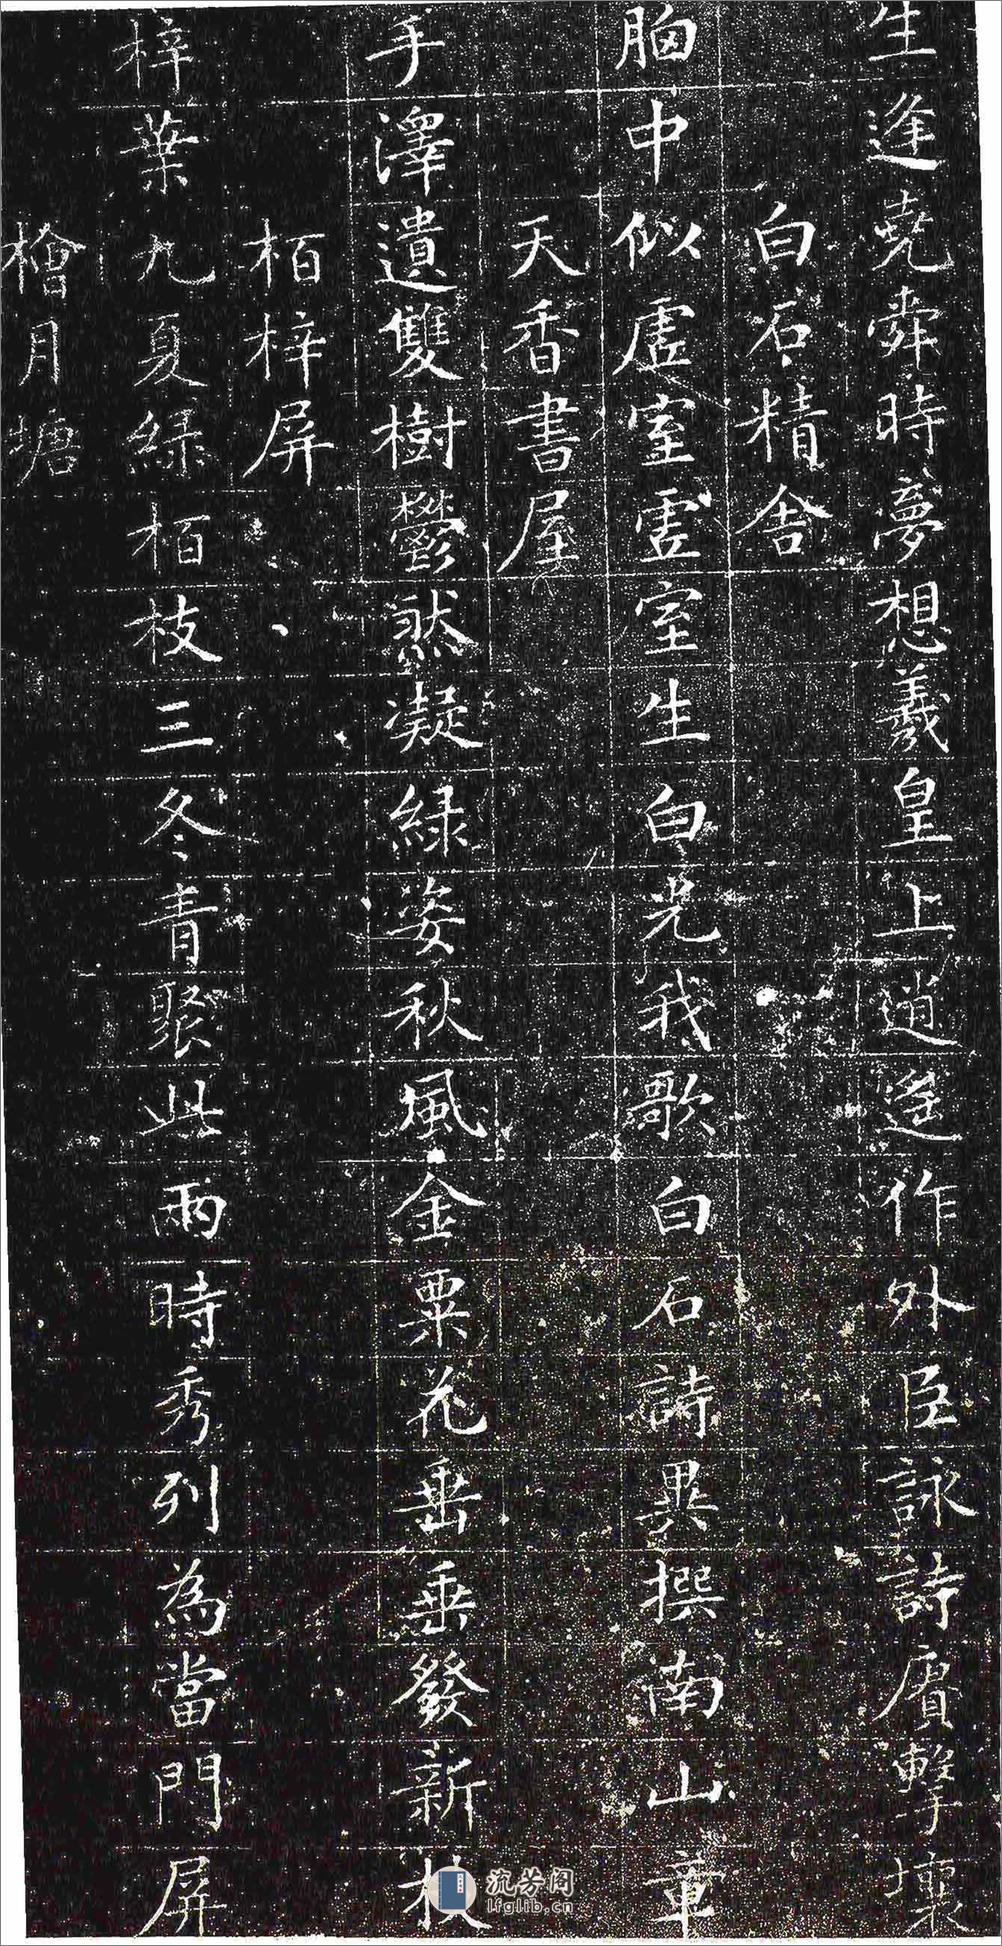 生逢堯舜時夢想羲皇上逍遙作外臣詠詩賡擊壤
白石精舍
胸中似虛室虛室生白光我歌白石詩異撰南山章
天香書屋
手澤遺雙樹鬱然凝綠姿秋風金粟花垂垂發新枝
栢梓屏
梓葉九夏綠栢枝三冬青聚此兩時秀列為當門屏
檜月塘
流芳阁
lfglib.cn